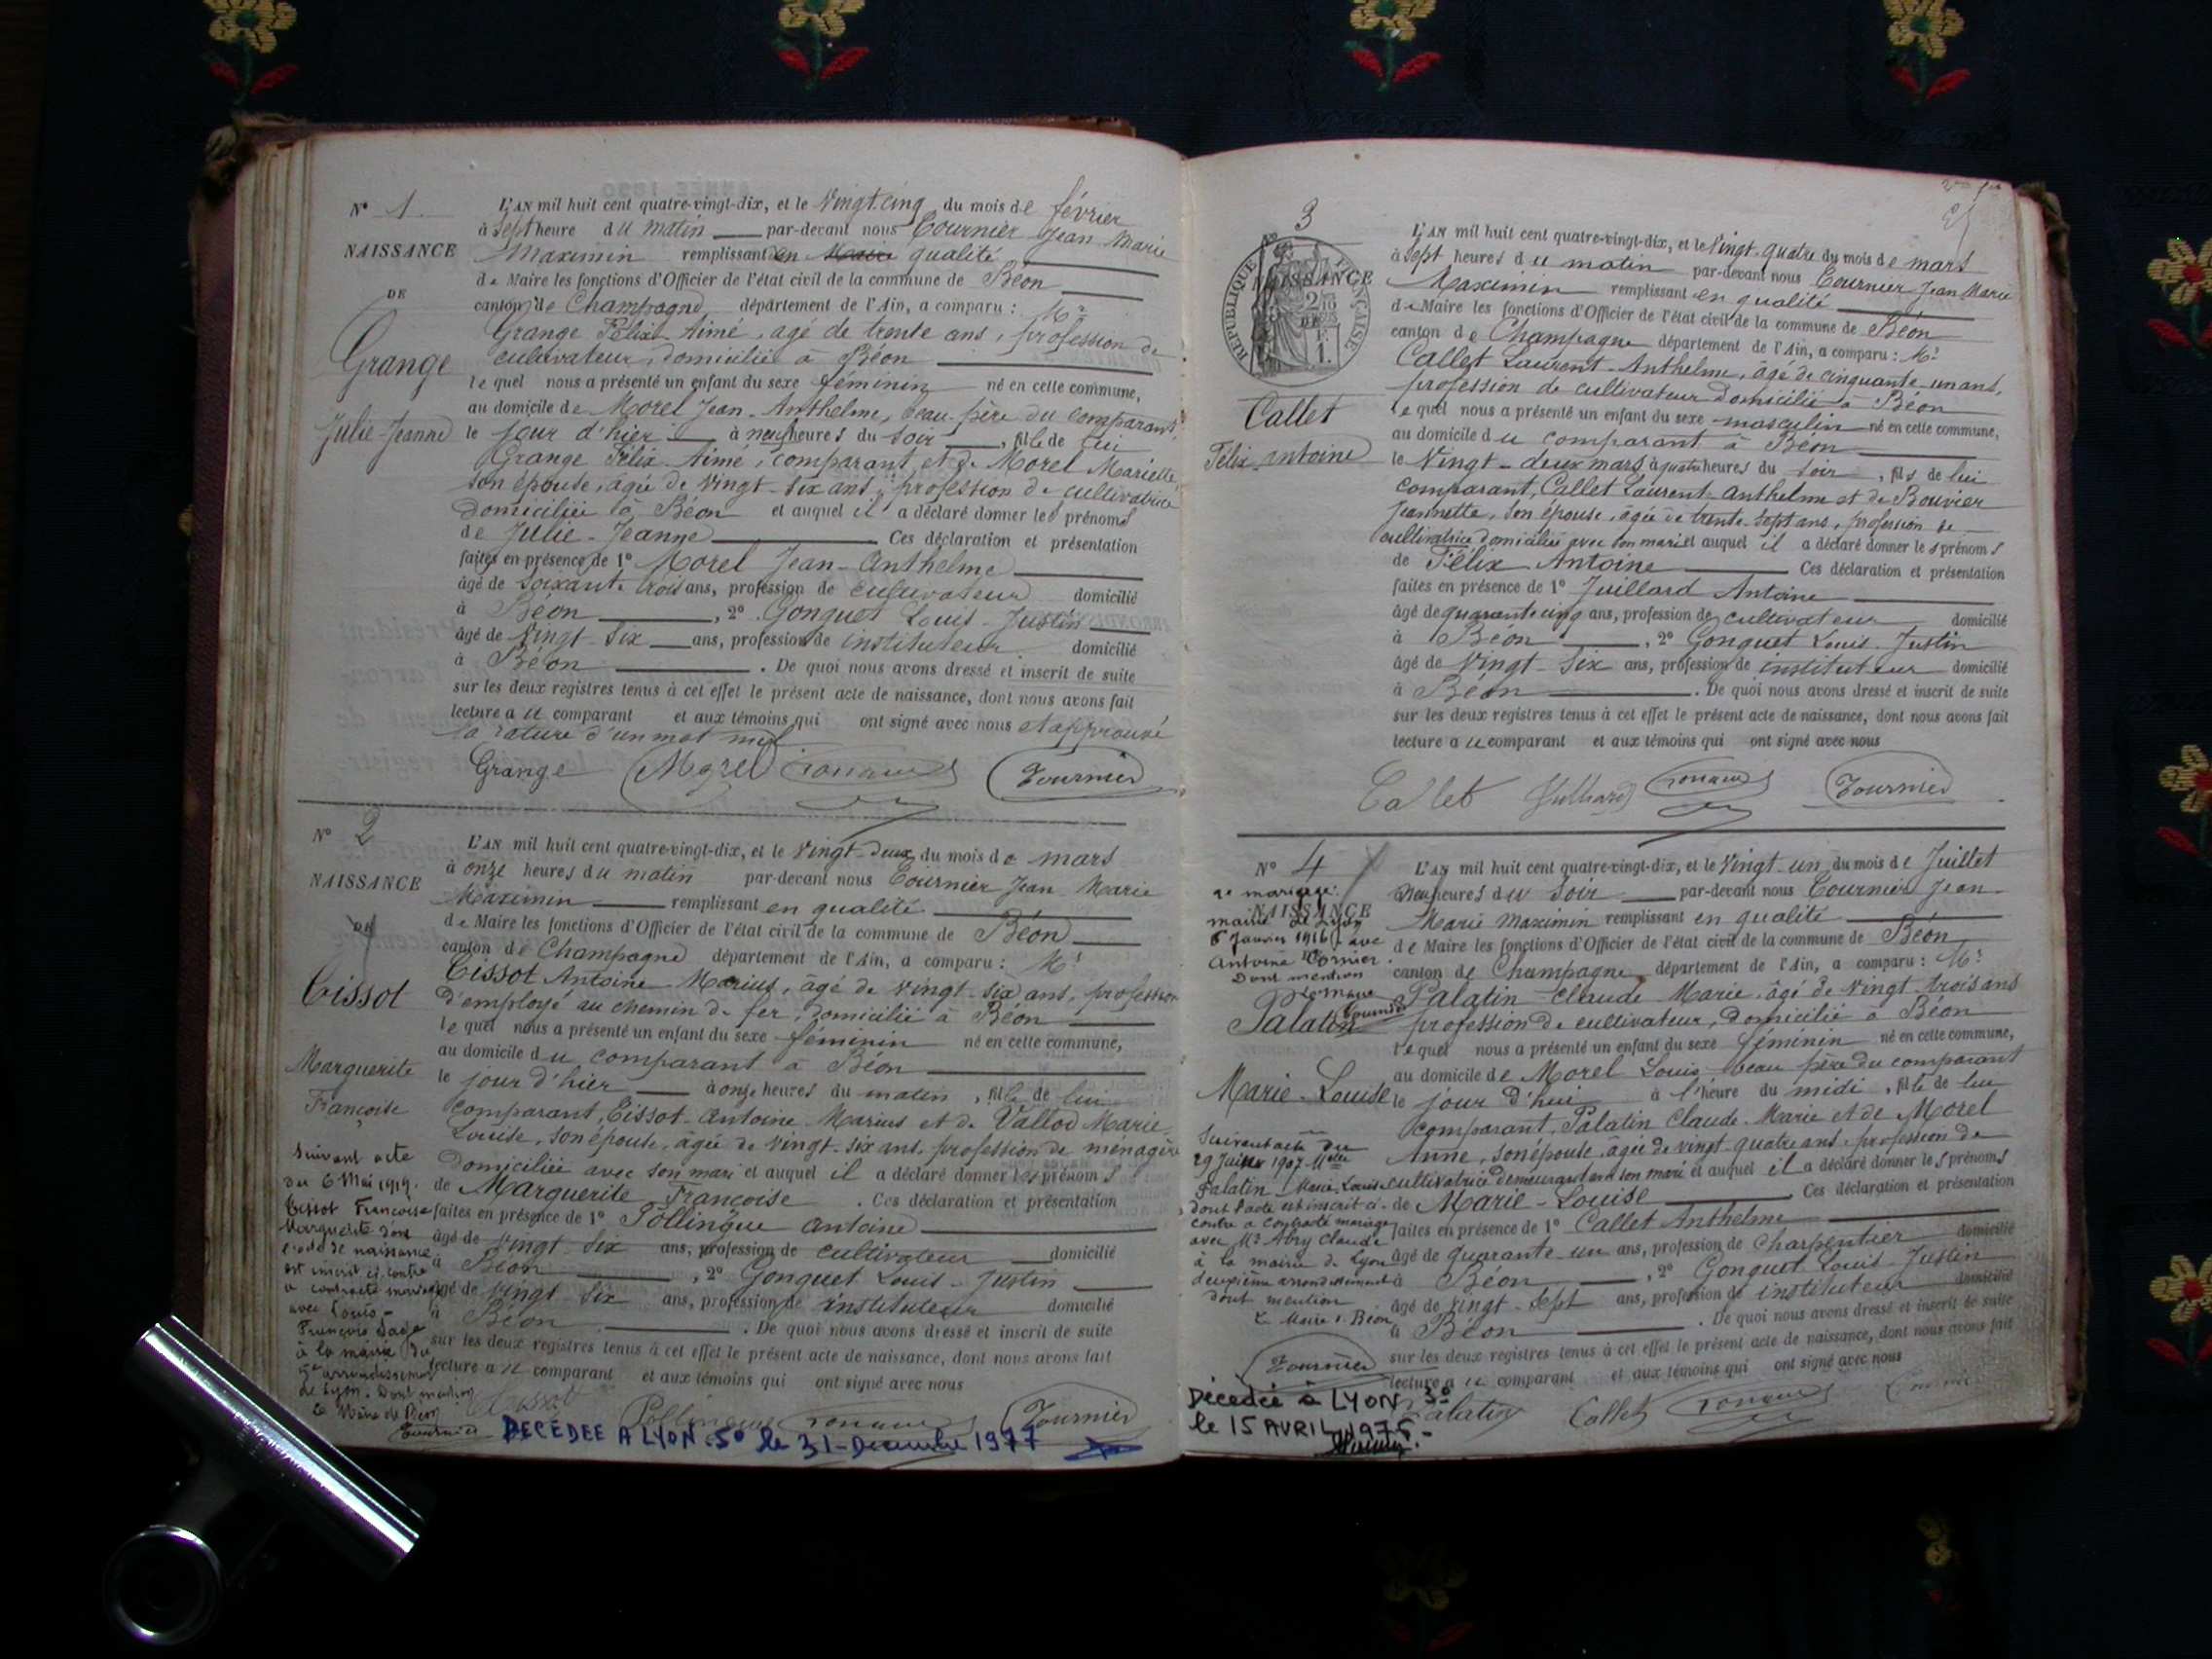 N° 1.
NAISSANCE
DE
Grange
Julie-Jeanne
L'AN mil huit cent quatre-vingt-dix, et le Vingt-cinq du mois de février
à sept heure du matin par-devant nous Tournier Jean Marie
Maximin remplissant en Maire qualité
de Maire les fonctions d'Officier de l'état civil de la commune de Béon
canton de Champagne département de l'Ain, a comparu : Mr
Grange Félix Aimé, agé de trente ans, profession de
cultivateur, domicilié à Béon
lequel nous a présenté un enfant du sexe féminin né en cette commune,
au domicile de Morel Jean-Anthelme, beau-père du comparant,
le jour d'hier à neuf heures du soir, fille de lui
Grange Félix Aimé, comparant, et de Morel Mariette,
son épouse, agée de vingt-six ans, profession de cultivatrice
domiciliée à Béon et auquel il a déclaré donner les prénoms
de Julie-Jeanne Ces déclaration et présentation
faites en présence de 1° Morel Jean-Anthelme
âgé de soixante trois ans, profession de cultivateur domicilié
à Béon, 2° Gonquet Louis-Justin
âgé de vingt-six ans, profession de instituteur domicilié
à Béon. De quoi nous avons dressé et inscrit de suite
sur les deux registres tenus à cet effet le présent acte de naissance, dont nous avons fait
lecture au comparant et aux témoins qui ont signé avec nous et approuvé
la rature d'un mot nul
Grange Morel Gonquet Tournier
N° 2
NAISSANCE
DE
Tissot
Marguerite
Françoise
L'AN mil huit cent quatre-vingt-dix, et le Vingt-deux du mois de mars
à onze heures du matin par-devant nous Tournier Jean Marie
Maximin remplissant en qualité
de Maire les fonctions d'Officier de l'état civil de la commune de Béon
canton de Champagne département de l'Ain, a comparu : Mr
Tissot Antoine Marius, âgé de vingt-six ans, profession
d'employé au chemin de fer, domicilié à Béon
lequel nous a présenté un enfant du sexe féminin né en cette commune,
au domicile du comparant à Béon
le jour d'hier à onze heures du matin, fille de lui
comparant, Tissot Antoine Marius et de Vallod Marie
Louise, son épouse, âgée de vingt-six ans, profession de ménagère
domiciliée avec son mari et auquel il a déclaré donner les prénoms
de Marguerite Françoise. Ces déclaration et présentation
faites en présence de 1° Pollingue Antoine
âgé de vingt-six ans, profession de cultivateur domicilié
à Béon, 2° Gonquet Louis-Justin
âgé de vingt-six ans, profession de instituteur domicilié
à Béon. De quoi nous avons dressé et inscrit de suite
sur les deux registres tenus à cet effet le présent acte de naissance, dont nous avons fait
lecture au comparant et aux témoins qui ont signé avec nous
Suivant acte
du 6 Mai 1919.
Tissot Françoise
Marguerite dont
l'acte de naissance
est inscrit ci contre
a contracté mariage
avec Louis-
François Sage
à la mairie du
5e arrondissement
de Lyon. Dont mention
Le Maire de Béon
Tournier
Tissot Pollingue Gonquet Tournier
DECEDEE A LYON. 5° le 31-Decembre 1977
3
NAISSANCE
DE
REPUBLIQUE FRANÇAISE
Callet
Félix-Antoine
L'AN mil huit cent quatre-vingt-dix, et le Vingt-quatre du mois de mars
à sept heures du matin par-devant nous Tournier Jean Marie
Maximin remplissant en qualité
de Maire les fonctions d'Officier de l'état civil de la commune de Béon
canton de Champagne département de l'Ain, a comparu : Mr
Callet Laurent-Anthelme, âgé de cinquante-un ans,
profession de cultivateur domicilié à Béon
lequel nous a présenté un enfant du sexe masculin né en cette commune,
au domicile du comparant à Béon
le Vingt-deux mars à quatre heures du soir, fils de lui
comparant, Callet Laurent-Anthelme et de Bouvier
Jeannette, son épouse, âgée de trente-sept ans, profession de
cultivatrice domiciliée avec son mari et auquel il a déclaré donner les prénoms
de Félix Antoine Ces déclaration et présentation
faites en présence de 1° Juillard Antoine
âgé de quarante cinq ans, profession de cultivateur domicilié
à Béon, 2° Gonquet Louis-Justin
âgé de Vingt-six ans, profession de instituteur domicilié
à Béon. De quoi nous avons dressé et inscrit de suite
sur les deux registres tenus à cet effet le présent acte de naissance, dont nous avons fait
lecture au comparant et aux témoins qui ont signé avec nous
Callet Julliard Gonquet Tournier
N° 4
2e mariage:
NAISSANCE
mairie de Lyon
6 Janvier 1916 avec
Antoine Cornier.
Dont mention
Le Maire
Tournier
Palatin
Marie-Louise
L'AN mil huit cent quatre-vingt-dix, et le Vingt-un du mois de Juillet
à neuf heures du soir par-devant nous Tournier Jean-
Marie Maximin remplissant en qualité
de Maire les fonctions d'Officier de l'état civil de la commune de Béon
canton de Champagne département de l'Ain, a comparu : Mr
Palatin Claude Marie, âgé de vingt-trois ans
profession de cultivateur, domicilié à Béon
lequel nous a présenté un enfant du sexe féminin né en cette commune,
au domicile de Morel Louis, beau père du comparant
le jour d'hui à l'heure du midi, fille de lui
comparant, Palatin Claude-Marie et de Morel
Anne, son épouse, âgée de vingt-quatre ans, profession de
cultivatrice demeurant avec son mari et auquel il a déclaré donner les prénoms
de Marie-Louise Ces déclaration et présentation
faites en présence de 1° Callet Anthelme
âgé de quarante-un ans, profession de charpentier domicilié
à Béon, 2° Gonquet Louis-Justin
âgé de vingt-sept ans, profession de instituteur domicilié
à Béon. De quoi nous avons dressé et inscrit de suite
sur les deux registres tenus à cet effet le présent acte de naissance, dont nous avons fait
lecture au comparant et aux témoins qui ont signé avec nous
Suivant acte du
29 Juillet 1907 Melle
Palatin Marie-Louise
dont l'acte est inscrit ci-
contre a contracté mariage
avec Mr Abry Claude
à la mairie de Lyon
deuxième arrondissement
dont mention
Le Maire de Béon,
Tournier
Palatin Callet Gonquet
Décédée à LYON 3°
le 15 AVRIL 1975.-